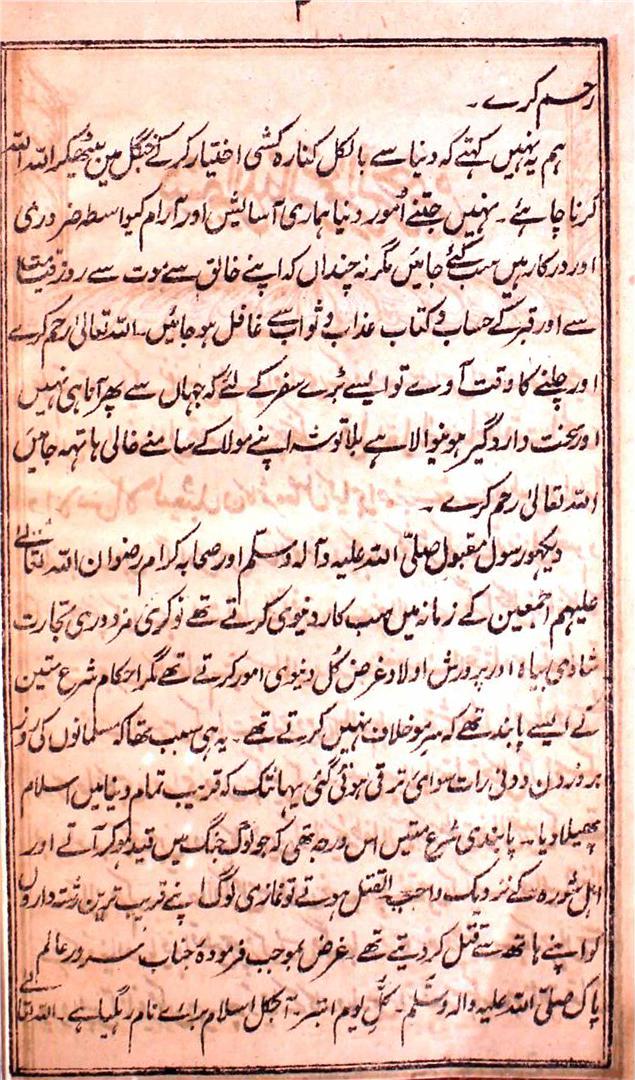 ۳
رحم کرے ۔
ہم یہ نہیں کہتے کہ دنیا سے بالکل کنارہ کشی اختیار کر کے جنگل میں بیٹھکر اللہ اللہ
کرنا چاہئے ۔ نہیں جتنے اُمور دنیا ہماری آسایش اور آرام کیواسطہ ضروری
اور درکار ہیں سب کئے جائیں مگر نہ چنداں کہ اپنے خالق سے موت سے روز قیامت
سے اور قبر کے حساب و کتاب عذاب و ثواب سے غافل ہو جائیں ۔ اللہ تعالیٰ رحم کرے
اور چلنے کا وقت آوے تو ایسے بڑے سفر کے لئے کہ جہاں سے پھر آنا ہی نہیں
اور سخت داروگیر ہونیوالا ہے بلا توشہ اپنے مولا کے سامنے خالی ہاتہہ جائیں
اللہ تعالیٰ رحم کرے ۔
دیکہو رسول مقبول صلّی اللہ علیہ وآلہ وسلّم اور صحابہ کرام رضوان اللہ تعالےٰ
علیہم اجمعین کے زمانہ میں سب کار دنیوی کرتے تھے نوکری مزدوری تجارت
شادی بیاہ اور پرورش اولاد غرض کُل دنیوی امور کرتے تھے مگر احکام شرع متین
کے ایسے پابند تھے کہ سرِ مو خلاف نہیں کرتے تھے ۔ یہ ہی سبب تھا کہ مسلمانوں کی روز
بروز دن دونی رات سوائی ترقی ہوتی گئی یہانتک کہ قریب تمام دنیا میں اسلام
پھیلا دیا ۔ پابندی شرع متیں اس درجہ تھی کہ جو لوگ جنگ میں قید ہو کر آتے اور
اہل شورہ کے نزدیک واجب القتل ہوتے تو غازی لوگ اپنے قریب ترین رشتہ داروں
کو اپنے ہاتھ سے قتل کر دیتے تھے ۔ غرض بموجب فرمودۂ جناب سرور عالم
پاک صلّی اللہ علیہ والہ وسلّم ۔ کلّ یوم ابتر ۔ آجکل اسلام براے نام رہگیا ہے ۔ اللہ تعالےٰ